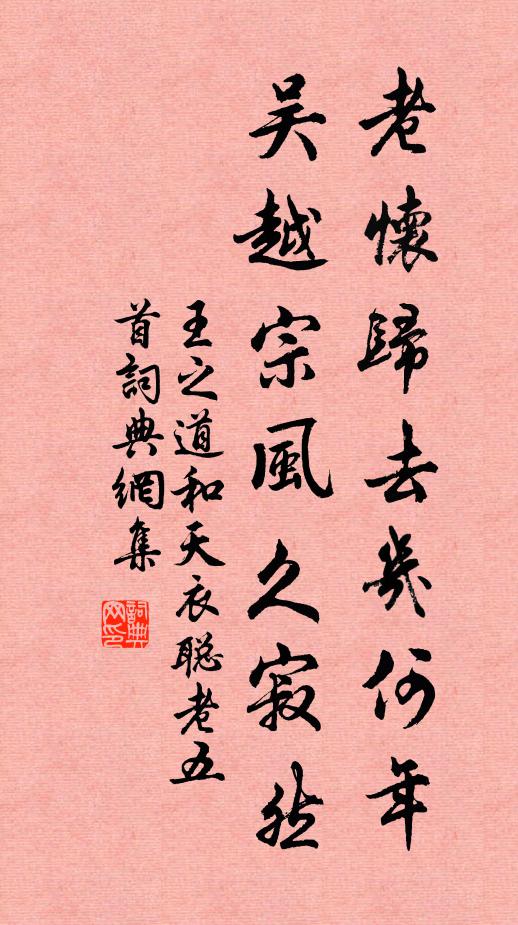 老懷歸去幾何年
吴越宗風久寂然
王之道和天衣聰老五
首詞典網集
詞典网印